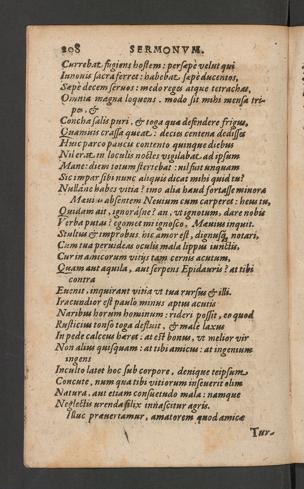 208 SERMONVM.
Currebat fugiens hostem: persæpè velut qui
Iunonis sacra ferret: habebat sæpè ducentos,
Sæpè decem seruos: modo reges atque tetrachas,
Omnia magna loquens. modo sit mihi mensa tri-
pes, &
Concha salis puri, & toga quæ defendere frigus,
Quamuis crassa queat: decies centena dedisses
Huic parco paucis contento quinque diebus
Nil erat in loculis noctes vigilabat ad ipsum
Mane: diem totum stertebat: nil fuit unquam
Sic impar sibi nunc aliquis dicat mihi quid tu?
Nullane habes vitia? imo alia haud fortasse minora
Maenius absentem Neuium cum carperet: heus tu,
Quidam ait, ignoras ne? an, vt ignotum, dare nobis
Verba putas? egomet mi ignosco, Mæuius inquit.
Stultus & improbus hic amor est, dignusq; notari,
Cum tua peruideas oculis mala lippus iunctis,
Cur in amicorum vitijs tam cernis acutum,
Quam aut aquila, aut serpens Epidaurius? at tibi
contra
Euenit, inquirant vitia vt tua rursus & illi.
Iracundior est paulo minus aptus acutis
Naribus horum hominum: rideri possit, eo quod
Rusticius tonso toga defluit, & male laxus
In pede calceus hæret: at est bonus, vt melior vir
Non alius quisquam: at tibi amicus: at ingenium
ingens
Inculto latet hoc sub corpore, denique teipsum
Concute, num qua tibi vitiorum inseuerit olim
Natura, aut etiam consuetudo mala: namque
Neglectis urenda filix innascitur agris.
Illuc præuertamur, amatorem quod amicæ
Tur-